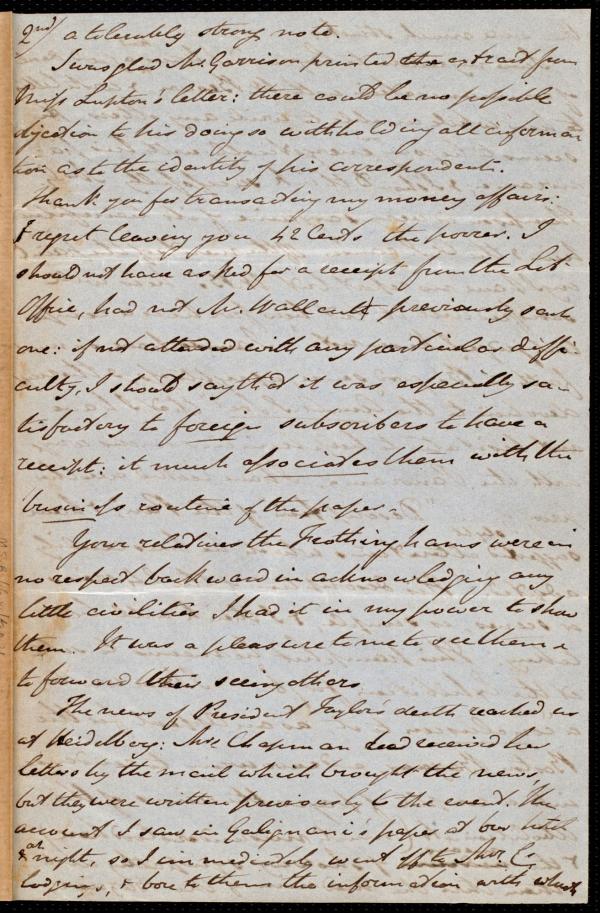 2nd/ a tolerably strong note.
I was glad Mr. Garrison printed the extract from
Miss Lupton's letter: there could be no possible
objection to his doing so withholding all informa-
tion as to the identity of his correspondent.
Thank you for transacting my money affairs:
I regret leaving you 42 Cents the poorer. I
should not have asked for a receipt from the Lib
Office, had not Mr. Wallcutt previously sent
one: if not attended with any particular diffi
culty, I should say that it was especially sa-
tisfactory to foreign subscribers to have a
receipt: it much associates them with the
business routine of the paper.
Your relatives the Frothinghams were in
no respect backward in acknowledging any
little civilities I had it in my power to show
them. It was a pleasure to me to see them &
to forward their seeing others
The news of President Taylor's death reached us
at Heidelberg: Mrs. Chapman had received her
letters by the mail which brought the news,
but they were written previously to the event. The
account I saw in Galignani's paper at our hotel
at night, so I immediately went off to Mrs. C's
lodgings, & bore to them the information with which